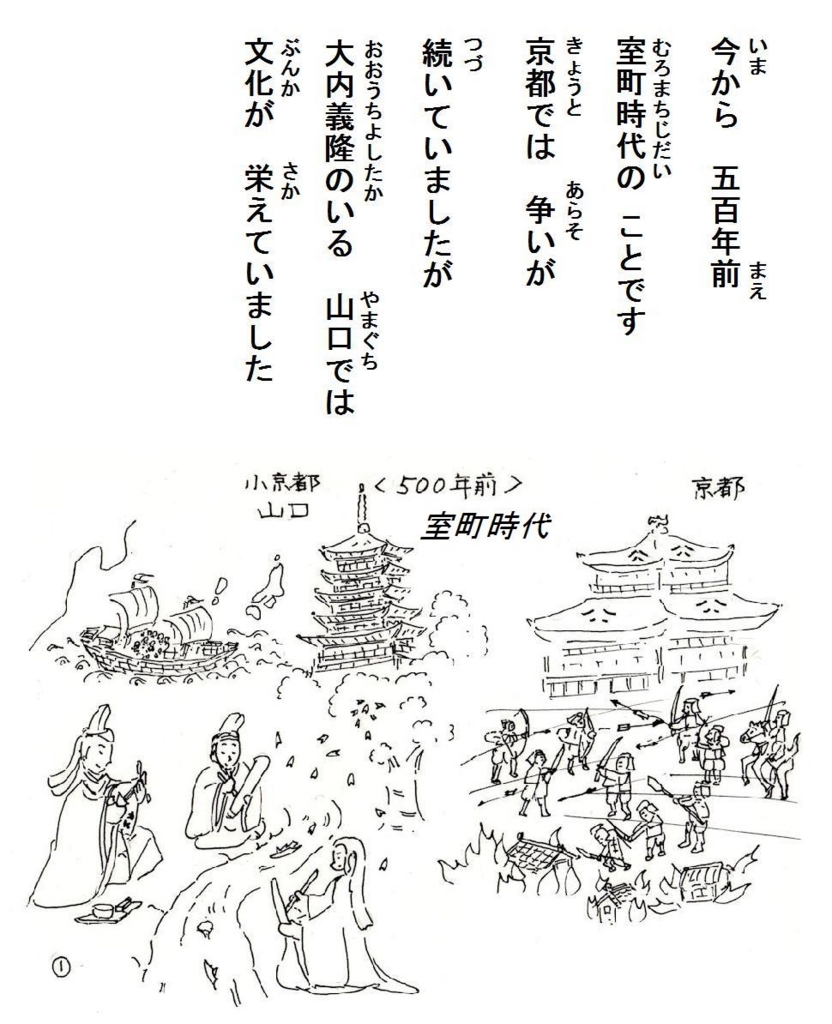 今から　五百年前
いま　まえ
室町時代の　ことです
むろまちじだい
京都では　争いが
きょうと　あらそ
続いていましたが
つづ
大内義隆のいる　山口では
おおうちよしたか　やまぐち
文化が　栄えていました
ぶんか　さか
小京都
山口
<500年前>
室町時代
京都
①